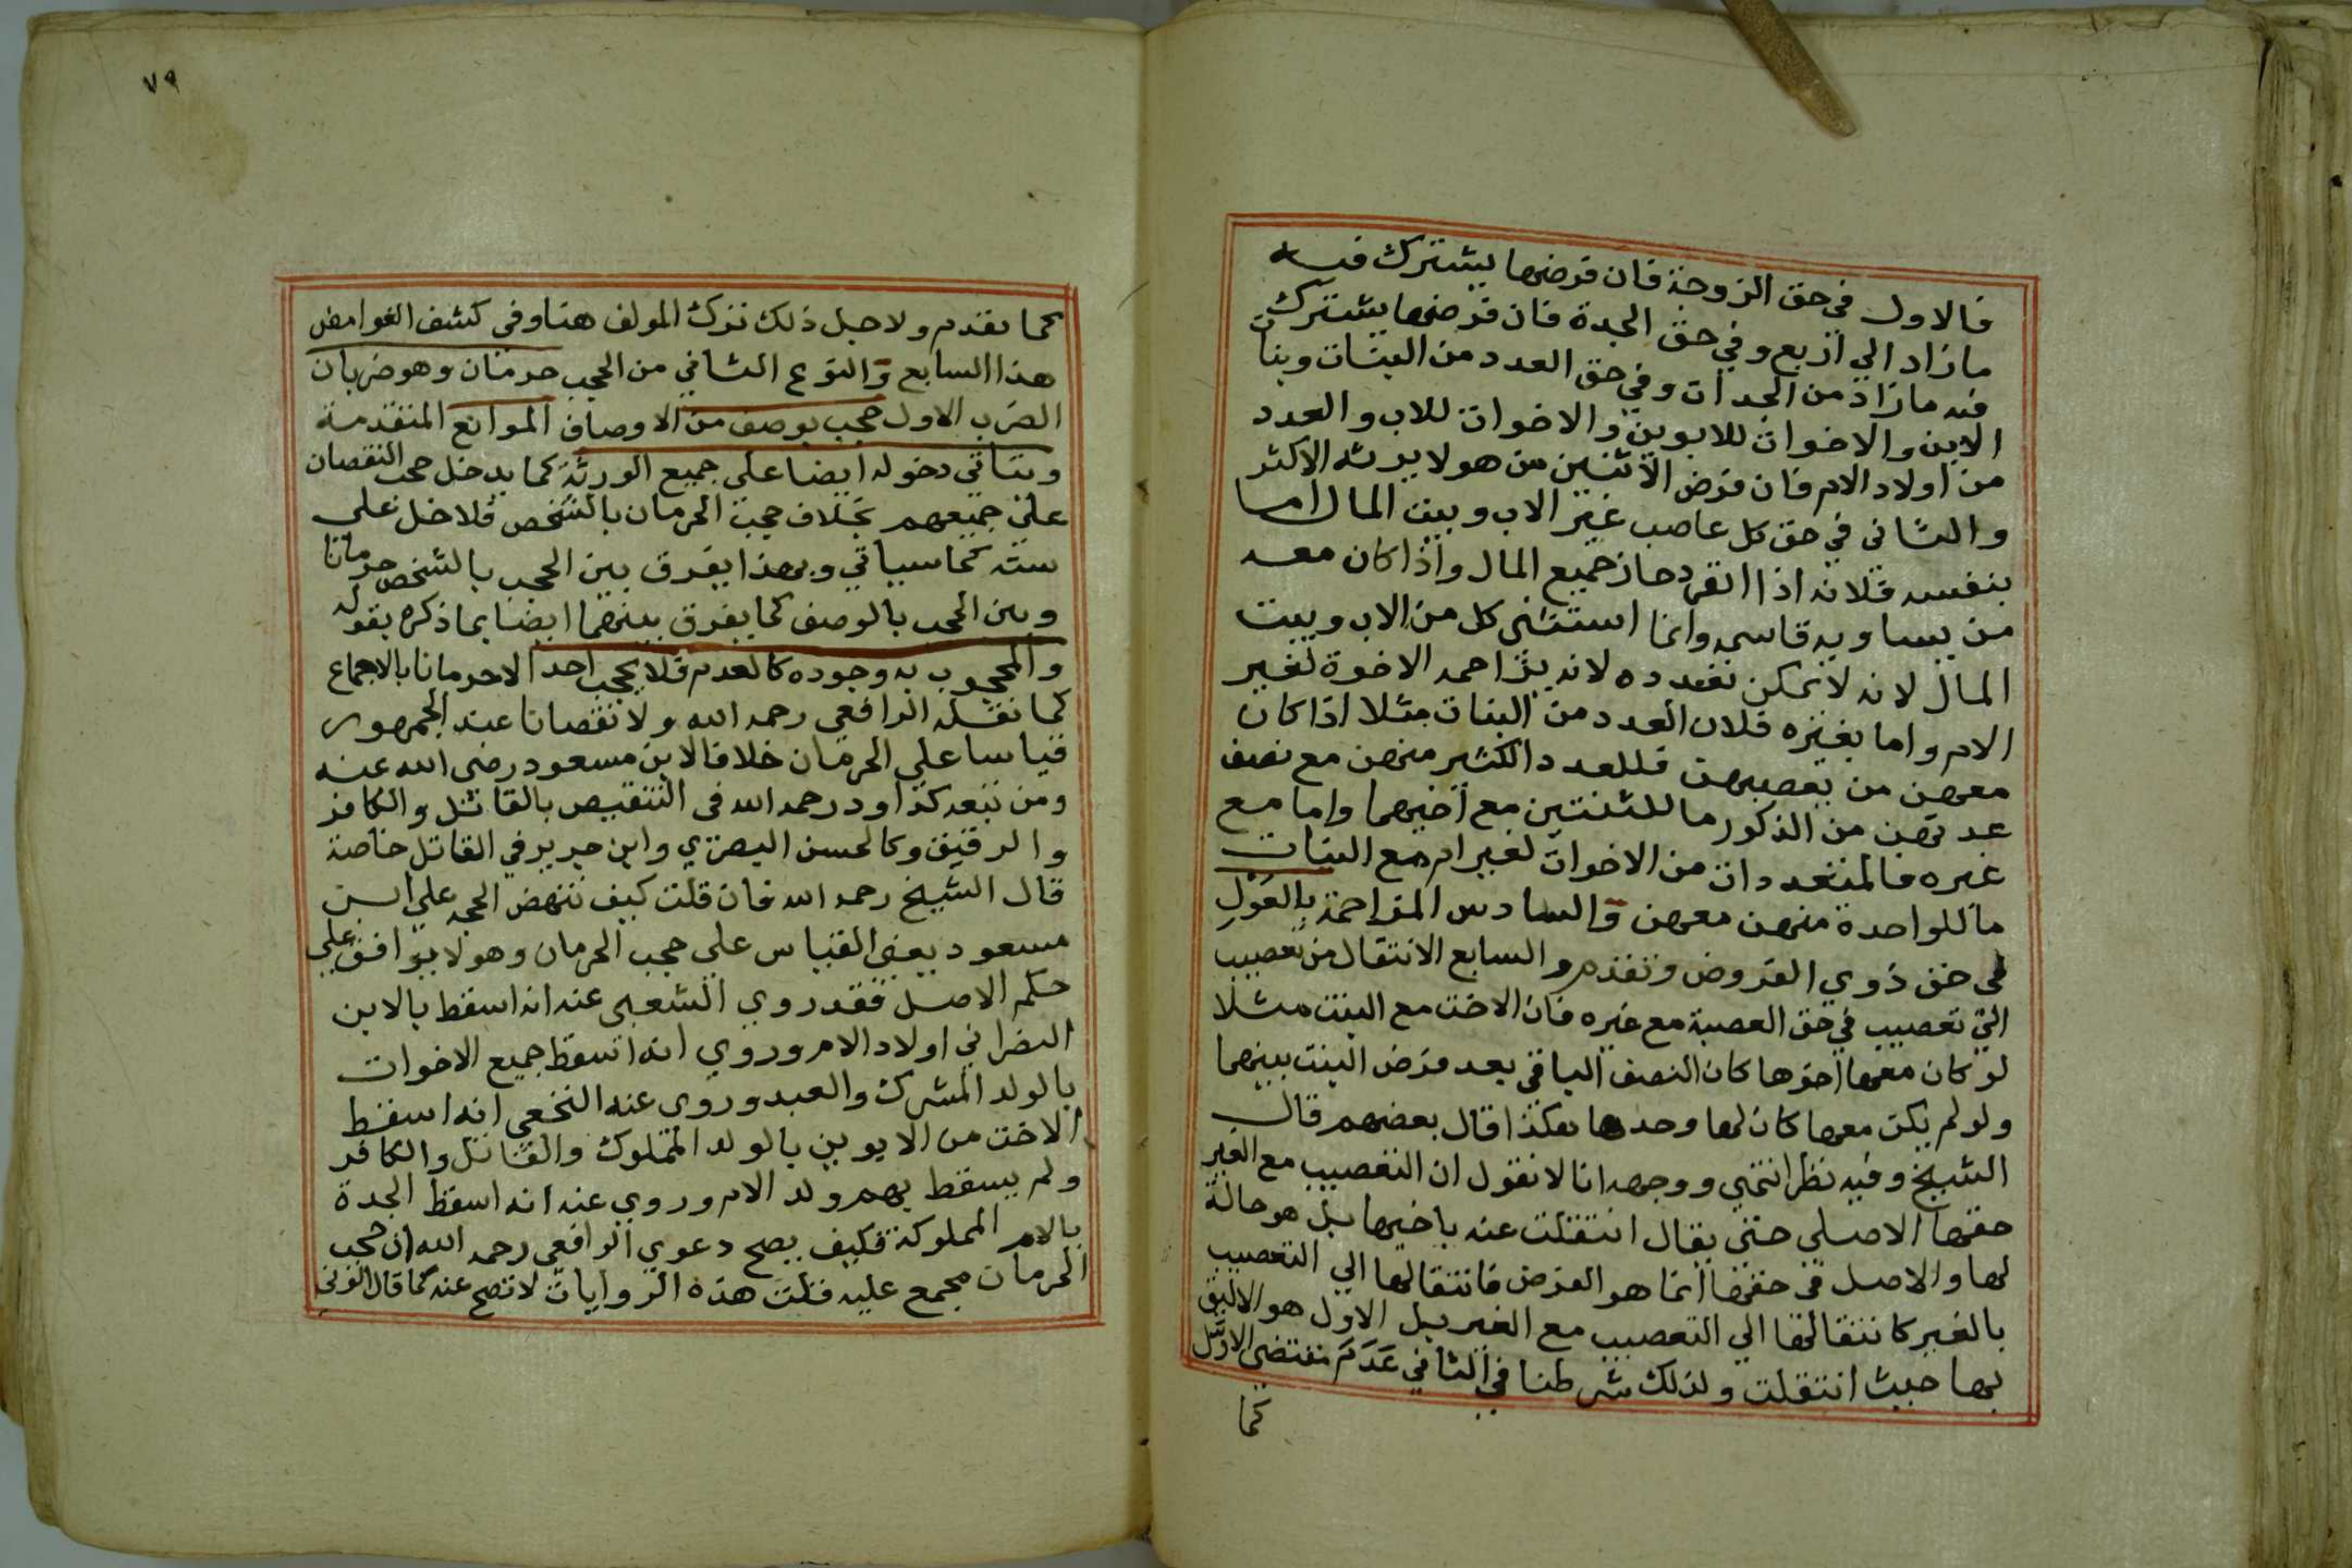 فالاول في حق الزوجة فان فرضها يشترك فيه
مازاد الي اربع وفي حق الجدة فان فرضها يشترك
فيه مازاد من الجدات وفي حق العدد من البنات وبنات
الابن والاخوات للابوين والاخوات للاب والعدد
من اولاد الام فان فرض الاثنين من هولا يرثه الاكثر
والثاني في حق كل عاصب غير الاب وبيت المال اما
بنفسه فلانه اذا انفرد حاز جميع المال واذا كان معه
من يساويه قاسمه وانما استثنى كل من الاب وبيت
المال لانه لا يمكن تعدده لانه يزاحمه الاخوة لغير
الام واما بغيره فلان العدد من البنات مثلا اذا كان
معهن من يعصبهن فللعدد الكثير منهن مع نصف
عدتهن من الذكور ما للثنتين مع اخيهما واما مع
غيره فالمتعددات من الاخوات لغير ام مع البنات
ما للواحدة منهن معهن والسادس المزاحمة بالعول
في حق ذوي الفروض وتقدم والسابع الانتقال من تعصيب
الي تعصيب في حق العصبة مع غيره فان الاخت مع البنت مثلا
لو كان معها اخوها كان النصف الباقي بعد فرض البنت بينهما
ولو لم يكن معها كان لها وحدها هكذا قال بعضهم قال
الشيخ وفيه نظر انتهي ووجهه انا لا نقول ان التعصيب مع الغير
حقها الاصلي حتي يقال انتقلت عنه باخيها بل هو حالة
لها والاصل في حقها انما هو الفرض فانتقالها الي التعصيب
بالغير كانتقالها الي التعصيب مع الغير بل الاول هو الاليق
بها حيث انتقلت ولذلك شرطنا في الثاني عدم مقتضى الاول
كما
٧٩
كما تقدم ولاجل ذلك ترك المولف هنا وفي كشف الغوامض
هذا السابع والنوع الثاني من الحجب حرمان وهو ضربان
الضرب الاول حجب بوصف من الاوصاف الموانع المتقدمة
ويتاتي دخوله ايضا على جميع الورثة كما يدخل حجب النقصان
على جميعهم بخلاف حجب الحرمان بالشخص فلا خل على
ستة كما سياتي وبهذا يفرق بين الحجب بالشخص حرمانا
وبين الحجب بالوصف كما يفرق بينهما ايضا بما ذكره بقوله
والمحجوب به وجوده كالعدم فلا يحجب احدا لا حرمانا بالاجماع
كما نقله الرافعي رحمه الله ولا نقصانا عند الجمهور
قياسا على الحرمان خلافا لابن مسعود رضى الله عنه
ومن تبعه كداود رحمه الله في التنقيص بالقاتل والكافر
والرقيق وكالحسن البصري وابن جرير في القاتل خاصة
قال الشيخ رحمه الله فان قلت كيف تنهض الحجة علي ابن
مسعود يعني القياس على حجب الحرمان وهو لا يوافق على
حكم الاصل فقد روي الشعبي عنه انه اسقط بالابن
النصراني اولاد الام وروي انه اسقط جميع الاخوات
بالولد المشرك والعبد وروى عنه النخعي انه اسقط
الاخت من الابوين بالولد المملوك والقاتل والكافر
ولم يسقط بهم ولد الام وروي عنه انه اسقط الجدة
بالام المملوكة فكيف يصح دعوي الرافعي رحمه الله ان حجب
الحرمان مجمع عليه قلت هذه الروايات لا تصح عنه كما قال